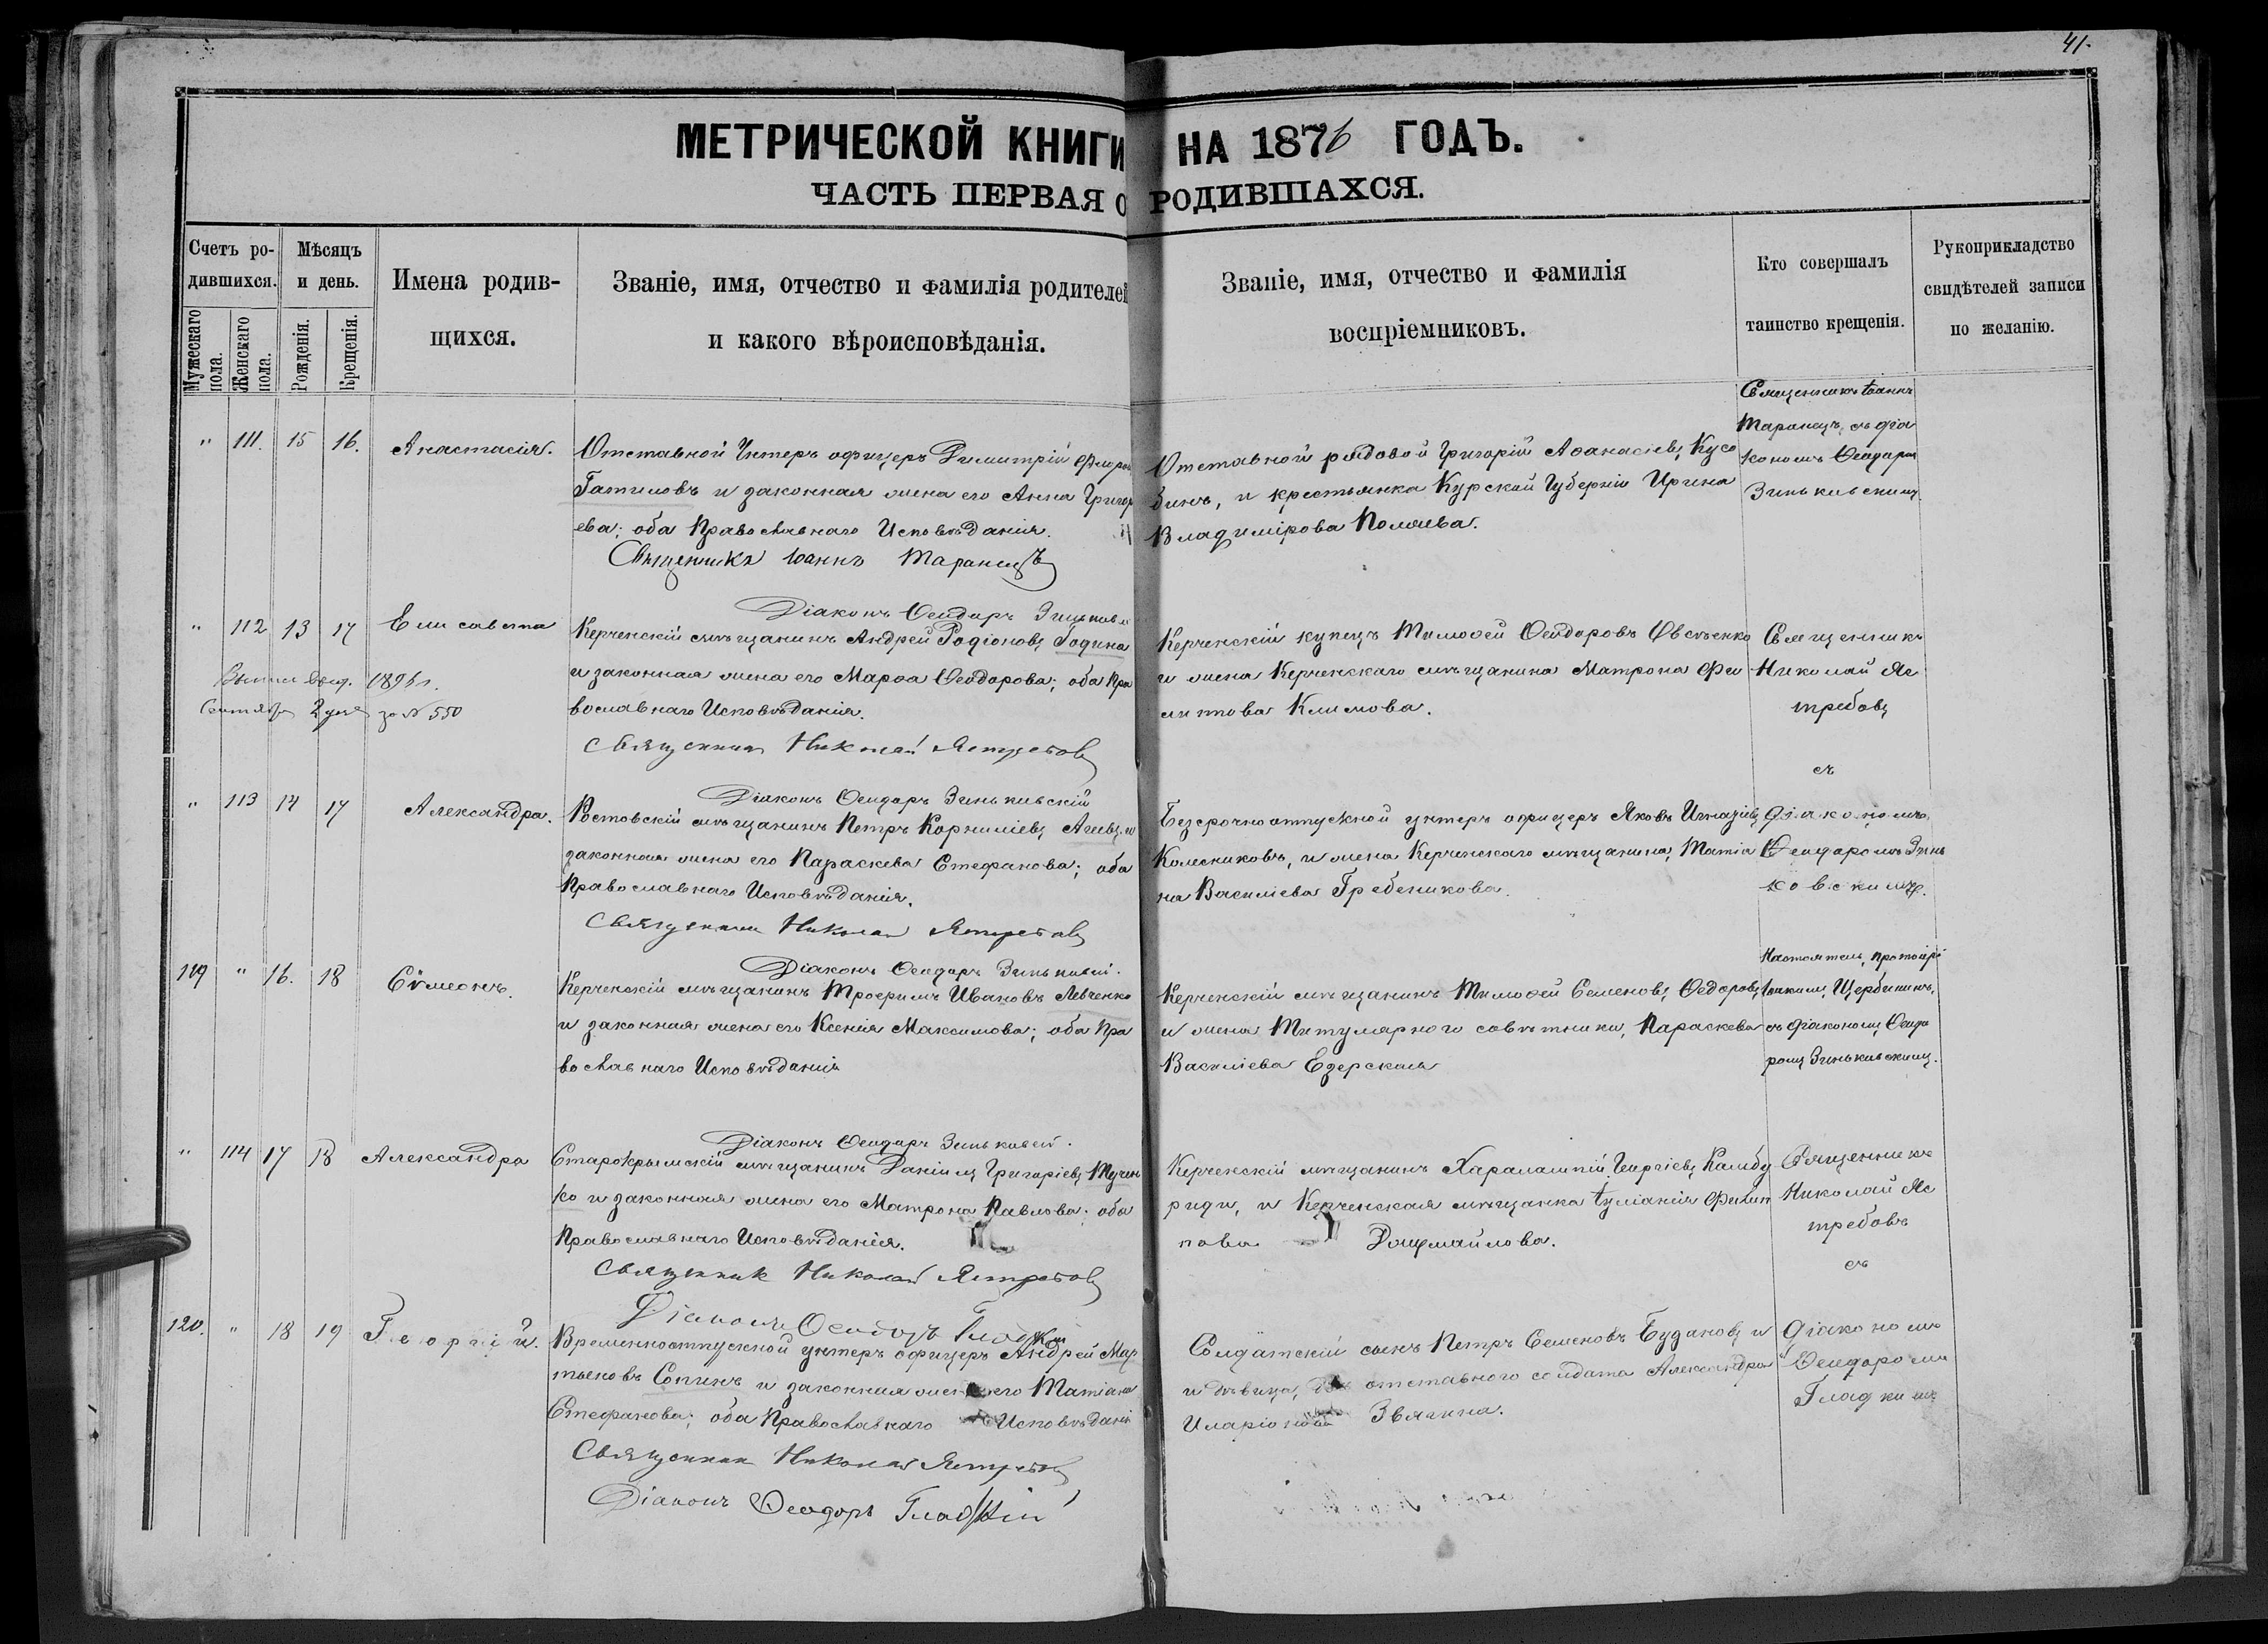 41.
МЕТРИЧЕСКОЙ КНИГИ НА 1876 ГОДЪ.
ЧАСТЬ ПЕРВАЯ О РОДИВШАХСЯ.
Счетъ ро-
дившихся.
Мужескаго пола.
Женскаго пола.
Мѣсяцъ
и день.
Рожденія.
Крещенія.
Имена родив-
щихся.
Званіе, имя, отчество и фамилія родителей
и какого вѣроисповѣданія.
Званіе, имя, отчество и фамилія
воспріемниковъ.
Кто совершалъ
таинство крещенія.
Рукоприкладство
свидѣтелей записи
по желанію.
" 111. 15 16. Анастасія.
Отставной Унтеръ офицеръ Димитрій Флоров
Гатиловъ и законная жена его Анна Григор
ева; оба Православнаго Исповѣданія.
Священникъ Іоаннъ Таранецъ
Діаконъ Ѳеодоръ
Отставной рядовой Григорій Аѳанасіевъ Кусо
динъ, и крестьянка Курской Губерніи Ирина
Владимірова Поляева.
Священникъ Іоаннъ
Таранецъ съ діа
кономъ Ѳеодоромъ
Зиньковскимъ
" 112 13 17 Елисавета
Керченскій мѣщанинъ Андрей Родіоновъ Година
и законная жена его Марѳа Ѳеодорова; оба Пра
вославнаго Исповѣданія.
Священникъ Николай Ястребовъ
Діаконъ Ѳеодоръ Зиньковскій
1896 г.
2 дня за № 550
Керченскій купецъ Тимоѳей Ѳеодоровъ Овсѣенко
и жена Керченскаго мѣщанина Матрона Фи
липпова Климова.
Священникъ
Николай Яс
требовъ
съ
" 113 14 17 Александра.
Ростовскій мѣщанинъ Петръ Корниліевъ Агеевъ и
законная жена его Параскева Стефанова; оба
Православнаго Исповѣданія.
Священникъ Николай Ястребовъ
Діаконъ Ѳеодоръ Зиньковскій.
Безсрочноотпускной унтеръ офицеръ Яковъ Игнатіевъ
Колесниковъ, и жена Керченскаго мѣщанина, Татіа
на Василіева Гребеникова.
діакономъ
Ѳеодоромъ Зинь
ковскимъ.
119 " 16. 18 Сѵмеонъ.
Керченскій мѣщанинъ Трофимъ Ивановъ Левченко
и законная жена его Ксенія Максимова; оба Пра
вославнаго Исповѣданія
Діаконъ Ѳеодоръ Зиньковскій.
Керченскій мѣщанинъ Тимоѳей Семеновъ Ѳедоровъ
и жена Титулярнаго совѣтника, Параскева
Василіева Езерская
Настоятель, протоіере
Іоакимъ Щербининъ,
съ діакономъ Ѳеодо
ромъ Зиньковскимъ.
" 114 17 18 Александра
Старокрымскій мѣщанинъ Даніилъ Григоріевъ Тучен
ко и законная жена его Матрона Павлова; оба
Православнаго Исповѣданія.
Священникъ Николай Ястребовъ
Діаконъ Ѳеодоръ Гладкій
Керченскій мѣщанинъ Харалампій Георгіевъ Камбу
риди, и Керченская мѣщанка Іуліанія Филип
пова
Священникъ
Николай Яс
требовъ
съ
120. " 18 19 Георгій.
Временноотпускной унтеръ офицеръ Андрей Мар
тыновъ Сопинъ и законная жена его Татіана
Стефанова; оба Православнаго Исповѣданія
Священникъ Николай Ястребовъ
Діаконъ Ѳеодоръ Гладкій
Солдатскій сынъ Петръ Семеновъ Будановъ и
дѣвица, отставного солдата Александра
Иларіонова Звягина.
діакономъ
Ѳеодоромъ
Гладкимъ